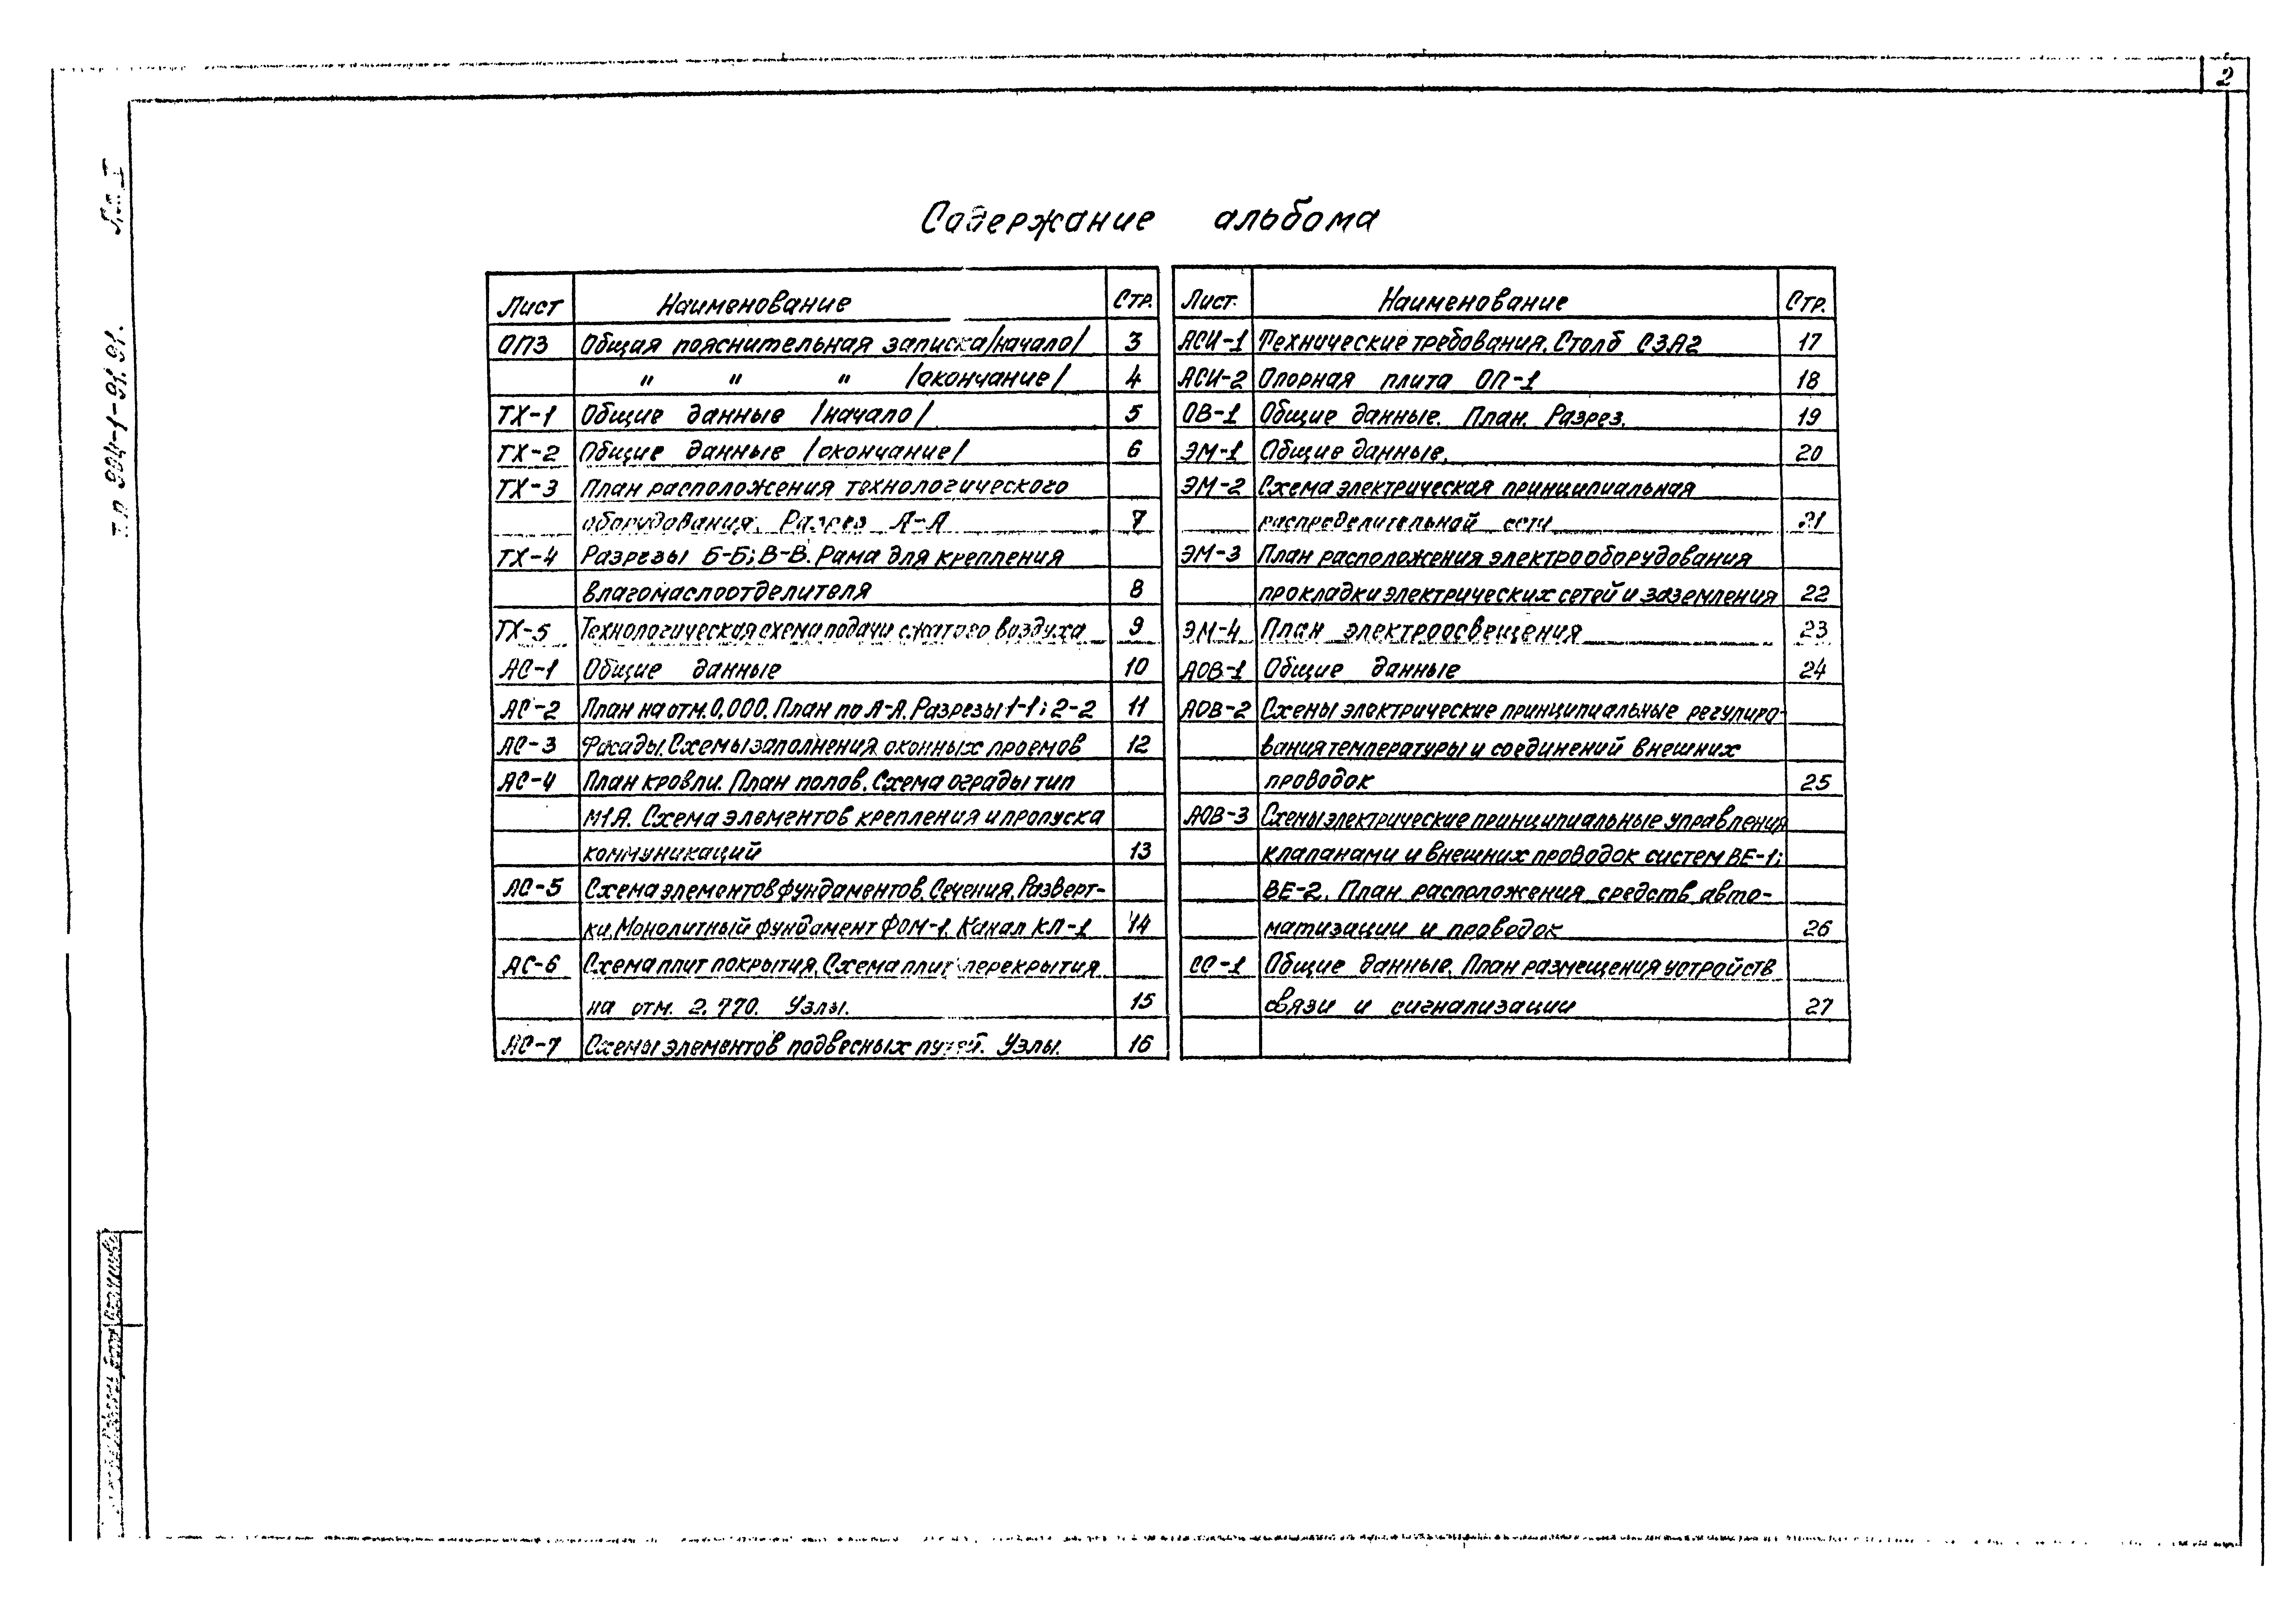 2
Т.П 904-1-91.91.
Содержание альбома
Лист Наименование Стр.
ОПЗ Общая пояснительная записка /начало/ 3
" " " /окончание/ 4
ТХ-1 Общие данные /начало/ 5
ТХ-2 Общие данные /окончание/ 6
ТХ-3 План расположения технологического
оборудования. Разрез А-А 7
ТХ-4 Разрезы Б-Б; В-В. Рама для крепления
влагомаслоотделителя 8
ТХ-5 Технологическая схема подачи сжатого воздуха 9
АС-1 Общие данные 10
АС-2 План на отм. 0,000. План по А-А. Разрезы 1-1; 2-2 11
АС-3 Фасады. Схемы заполнения оконных проемов 12
АС-4 План кровли. План полов. Схема ограды тип
М1А. Схема элементов крепления и пропуска
коммуникаций 13
АС-5 Схема элементов фундаментов. Сечения. Разверт-
ки. Монолитный фундамент ФОМ-1. Канал КЛ-1 14
АС-6 Схема плит покрытия. Схема плит перекрытия
на отм. 2.770. Узлы. 15
АС-7 Схемы элементов подвесных путей. Узлы. 16
Лист. Наименование Стр.
АСИ-1 Технические требования. Столб С3А2 17
АСИ-2 Опорная плита ОП-1 18
ОВ-1 Общие данные. План. Разрез. 19
ЭМ-1 Общие данные. 20
ЭМ-2 Схема электрическая принципиальная
распределительной сети 21
ЭМ-3 План расположения электрооборудования
прокладки электрических сетей и заземления 22
ЭМ-4 План электроосвещения 23
АОВ-1 Общие данные 24
АОВ-2 Схемы электрические принципиальные регулиро-
вания температуры и соединений внешних
проводок 25
АОВ-3 Схемы электрические принципиальные управления
клапанами и внешних проводок систем ВЕ-1;
ВЕ-2. План расположения средств авто-
матизации и проводок 26
СС-1 Общие данные. План размещения устройств
связи и сигнализации 27